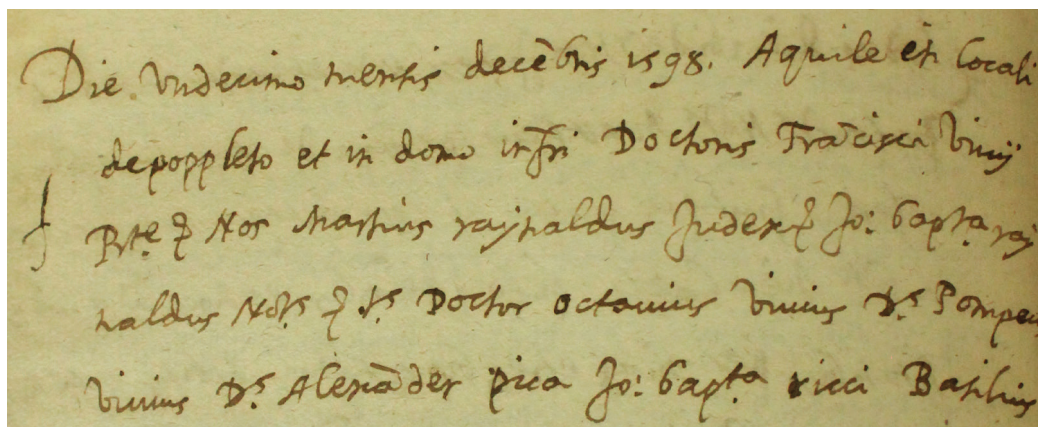 Die Vndecimo mensis decēbris 1598. Aquile et in locali
de poppleto et in domo infri Doctoris Frācisci Vivij
Pnte & Nos Martius raynaldus Judex & Jo: bapta ray
naldus Nots & Ds Doctor octavius Vivius Ds Pompeu
Vivius Ds Alexāder pica Jo: bapta ricci Basilius